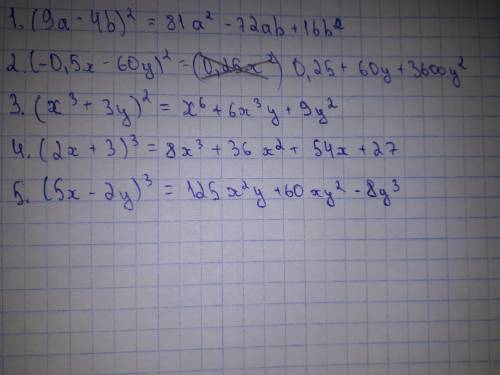 1. (9a - 4b)² = 81a² - 72ab + 16b²
2. (-0,5x - 60y)² = (0,25x²) 0,25 + 60y + 3600y²
3. (x³ + 3y)² = x⁶ + 6x³y + 9y²
4. (2x + 3)³ = 8x³ + 36x² + 54x + 27
5. (5x - 2y)³ = 125x²y + 60xy² - 8y³